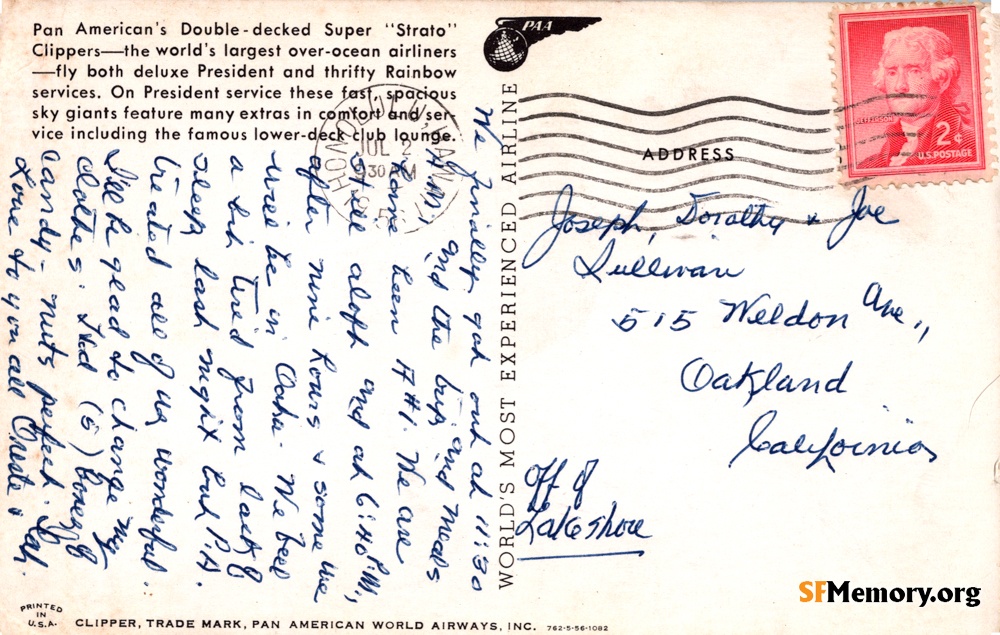 Pan American's Double-decked Super "Strato"
Clippers—the world's largest over-ocean airliners
—fly both deluxe President and thrifty Rainbow
services. On President service these fast, spacious
sky giants feature many extras in comfort and ser-
vice including the famous lower-deck club lounge.
PAA
WORLD'S MOST EXPERIENCED AIRLINE
HONOLULU, HAWAII
JUL 2
930 AM
JEFFERSON
2¢
U.S. POSTAGE
ADDRESS
We finally got out at 11:30
A.M. and the trip and meals
have been A #1. We are
still aloft and at 6:40 P.M,
after nine hours & some we
will be in Oahu. We feel
a bit tired from lack of
sleep last night but P.A.
treated all of us wonderful.
I'll be glad to change my
clothes. Had (5) boxes of
candy - nuts perfect.
Love to you all
Joseph, Dorothy & Joe
Sullivan
515 Weldon Ave.,
Oakland
California
Off of
Lakeshore
PRINTED
IN
U.S.A.
CLIPPER, TRADE MARK, PAN AMERICAN WORLD AIRWAYS, INC. 762-5-56-1082
SFMemory.org